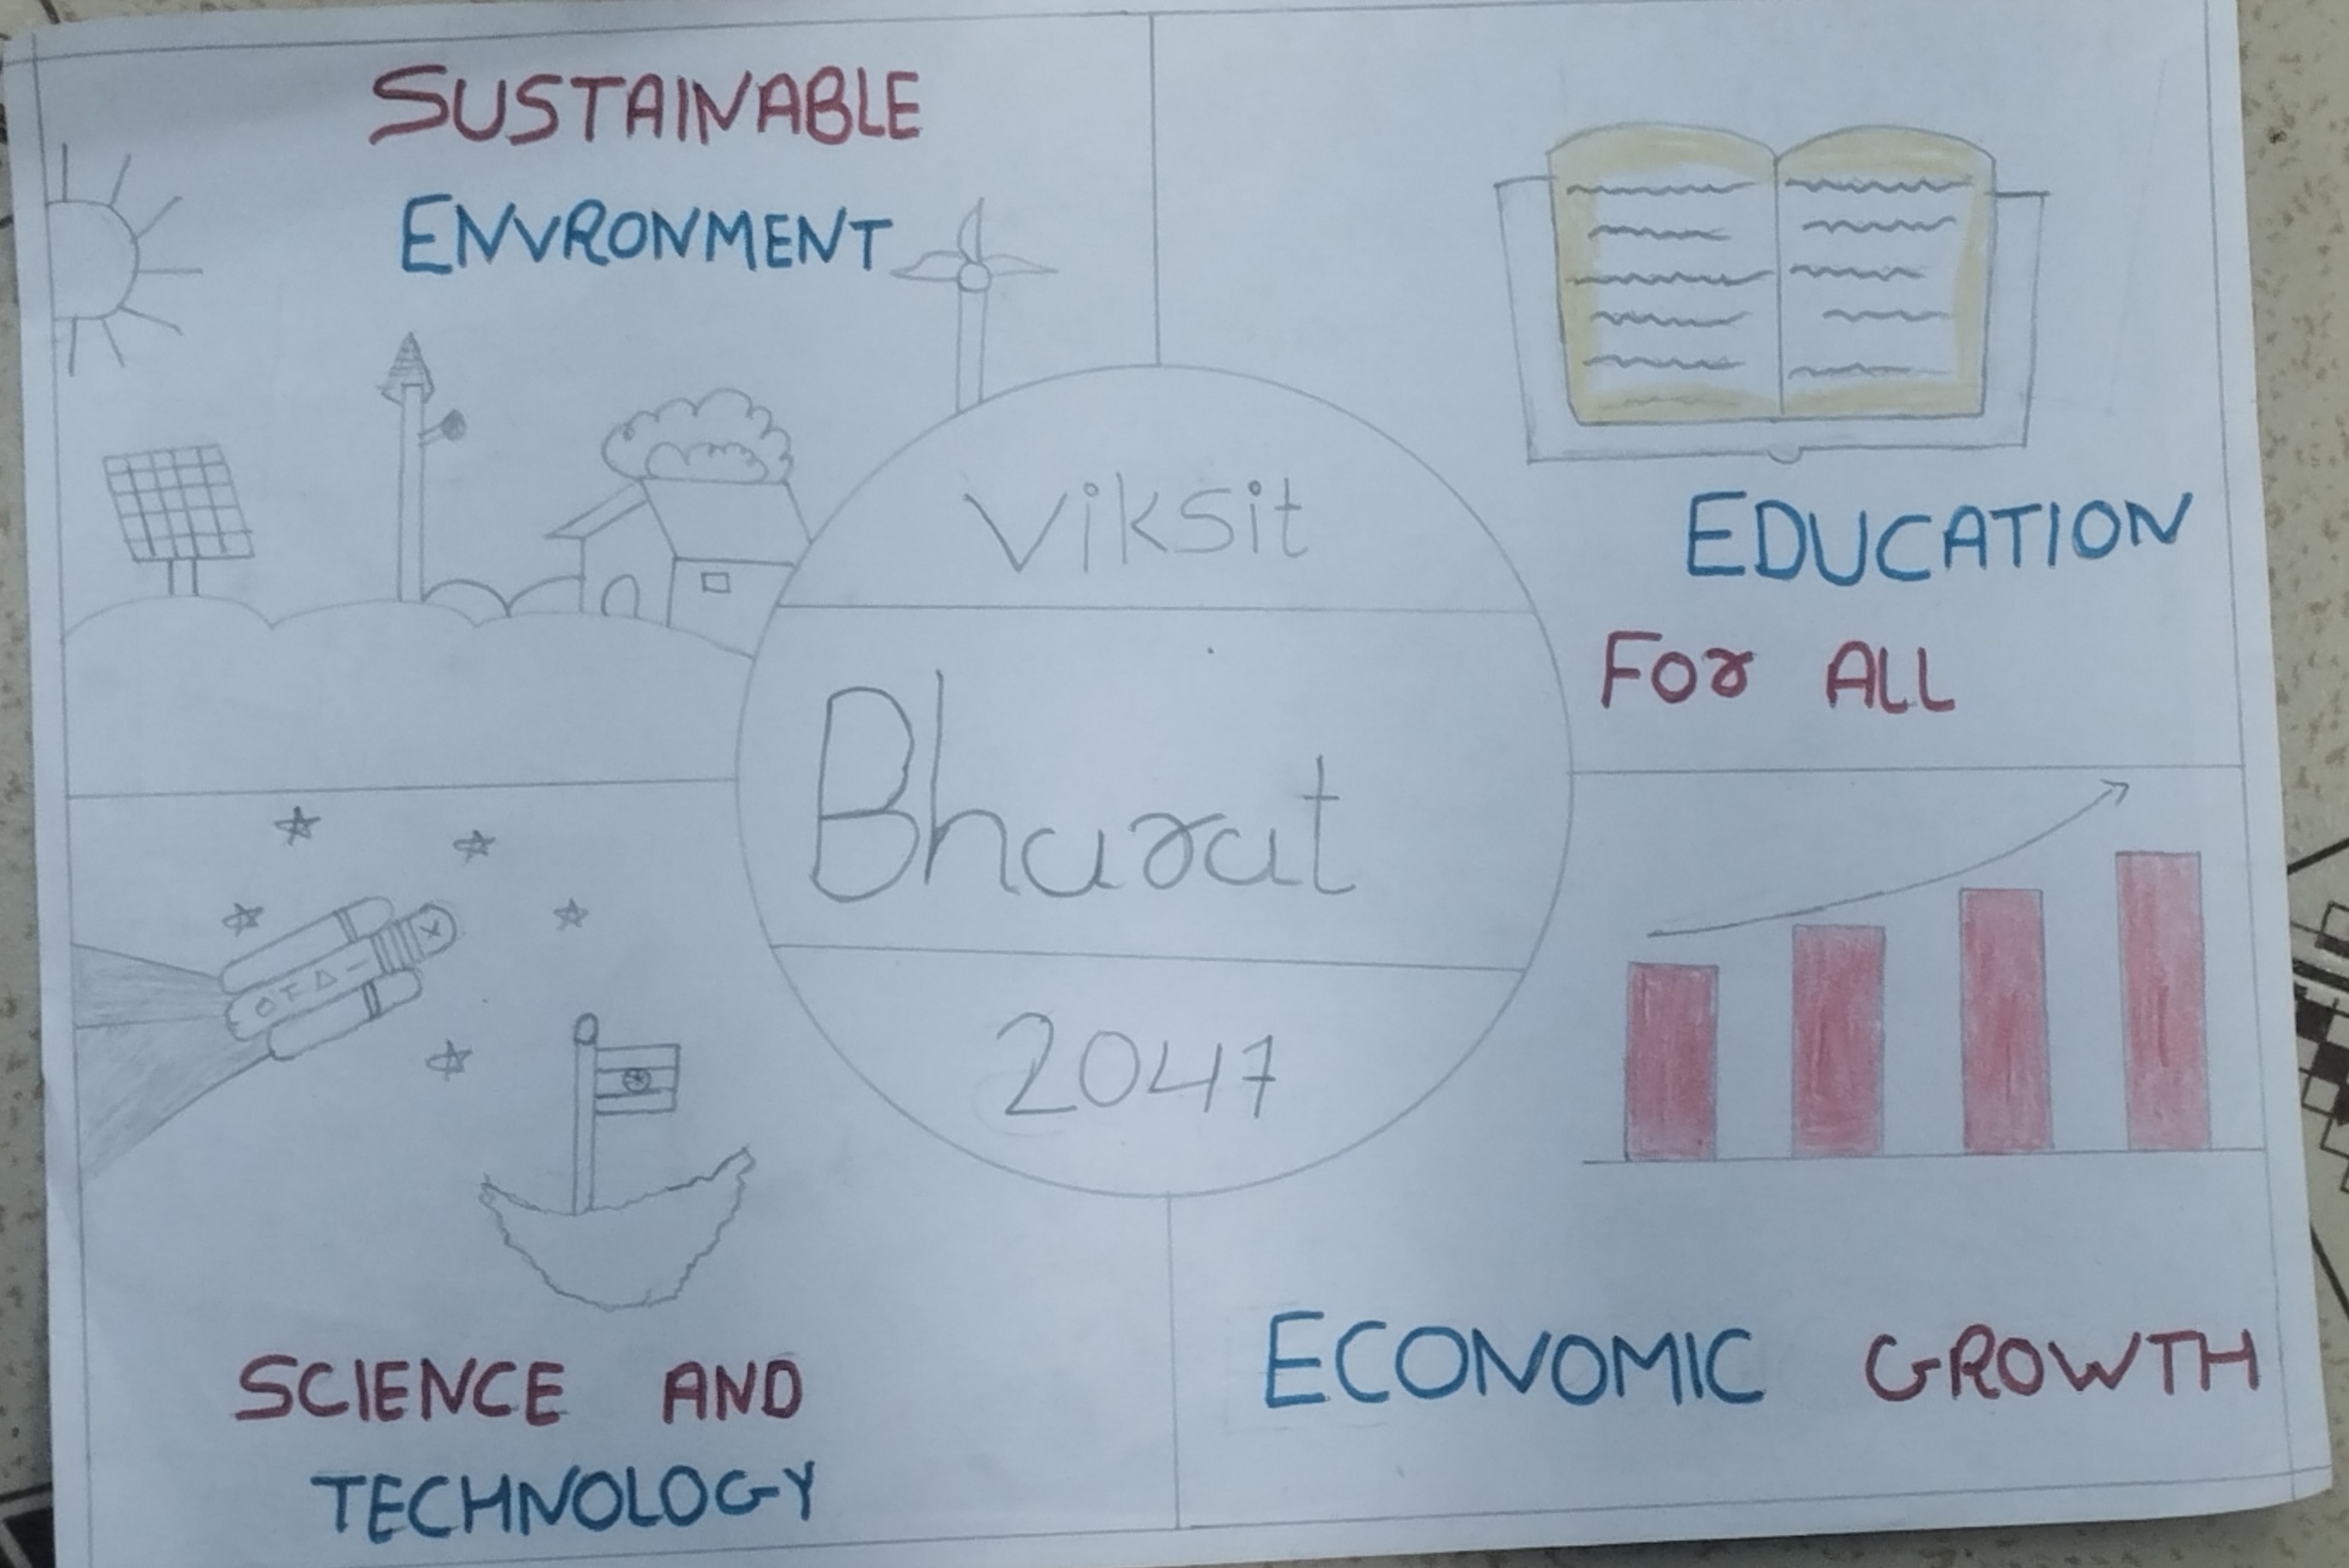 SUSTAINABLE
ENVRONMENT
EDUCATION
For ALL
Viksit
Bharat
2047
SCIENCE AND
TECHNOLOGY
ECONOMIC GROWTH